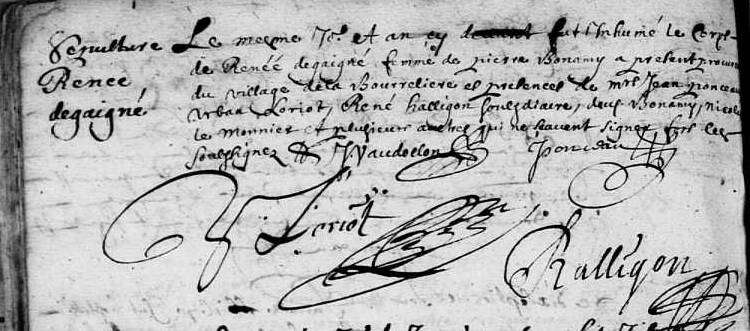 Sepulture
Renee
degaigné
Le mesme Jor. et an cy fut Inhumé le Corps
de Renée degaigné femme de pierre Bonamy a present procureur
du village de la Bourreliere es presences de Mrs Jean ponceau
Urban Loriot, René Ralligon soubsdiacre, deux Bonamy, Nicolas
le Monnier et plusieurs autres qui ne scavent signer fors les
soubsignez J. Vaudoelon Jponceau
Loriot
Ralligon